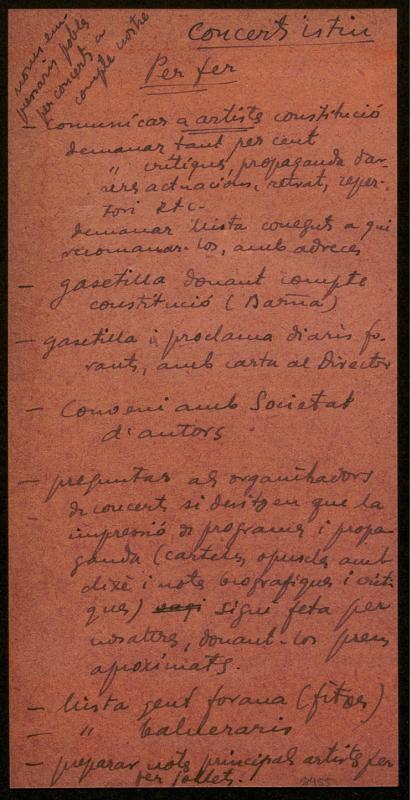 noms em-
presaris pobles
per concerts a
compte nostre
Concerts istiu
Per fer
- comunicar a artists constitució
demanar tant per cent
" critiques, propaganda dar-
reres actuacions, retrat, reper-
tori etc.
demanar llista coneguts a qui
recomanar-los, amb adreces
- gasetilla donant compte
constitució (Barna)
- gasetilla i proclama diaris fo-
rants, amb carta al Director
- Conveni amb Societat
d'autors
- preguntar als organitzadors
de concerts si desitgen que la
impressió de programes i propa-
ganda (cartells, opuscles amb
clixé i nots biografiques i criti-
ques) sigui feta per
nosaltres, donant-los preus
aproximats.
- llista gent forana (fitxes)
- " balnearis
- preparar nots principals artists per
per follets.